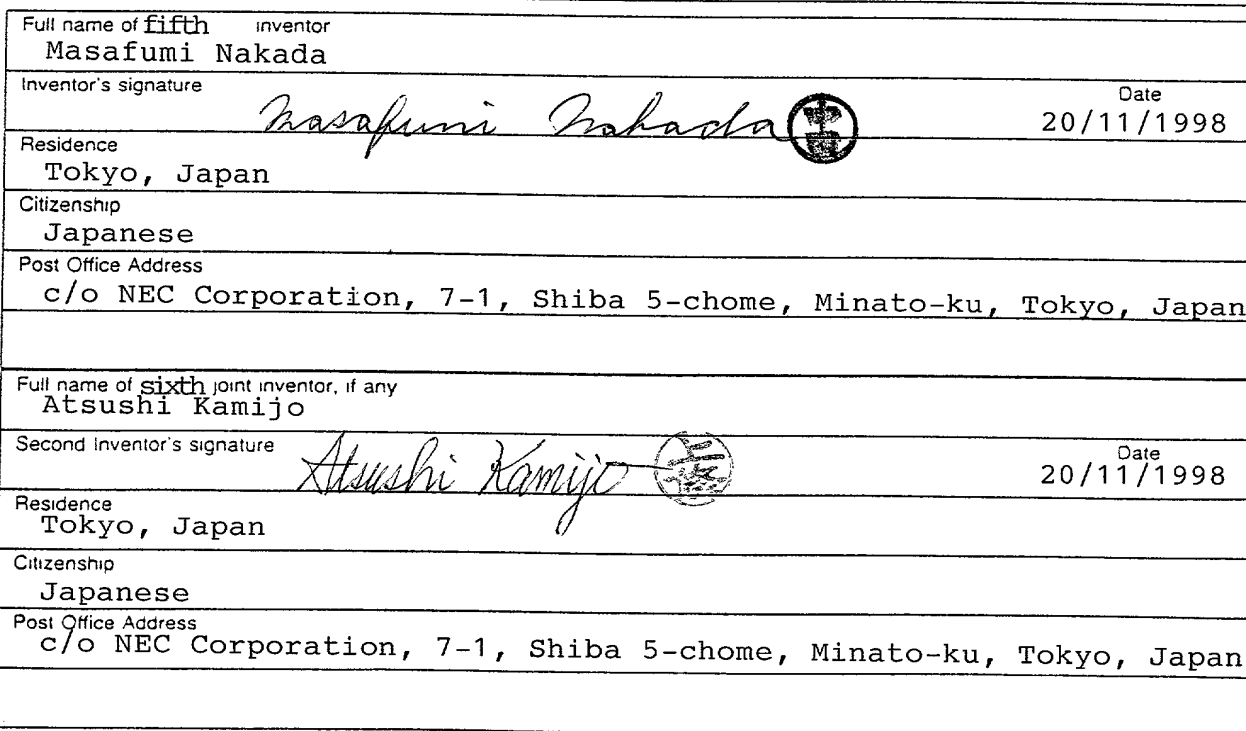 Full name of fifth inventor
Masafumi Nakada
Inventor's signature
Masafumi Nakada 中田
Date
20/11/1998
Residence
Tokyo, Japan
Citizenship
Japanese
Post Office Address
c/o NEC Corporation, 7-1, Shiba 5-chome, Minato-ku, Tokyo, Japan
Full name of sixth joint inventor, if any
Atsushi Kamijo
Second Inventor's signature
Atsushi Kamijo 上條
Date
20/11/1998
Residence
Tokyo, Japan
Citizenship
Japanese
Post Office Address
c/o NEC Corporation, 7-1, Shiba 5-chome, Minato-ku, Tokyo, Japan